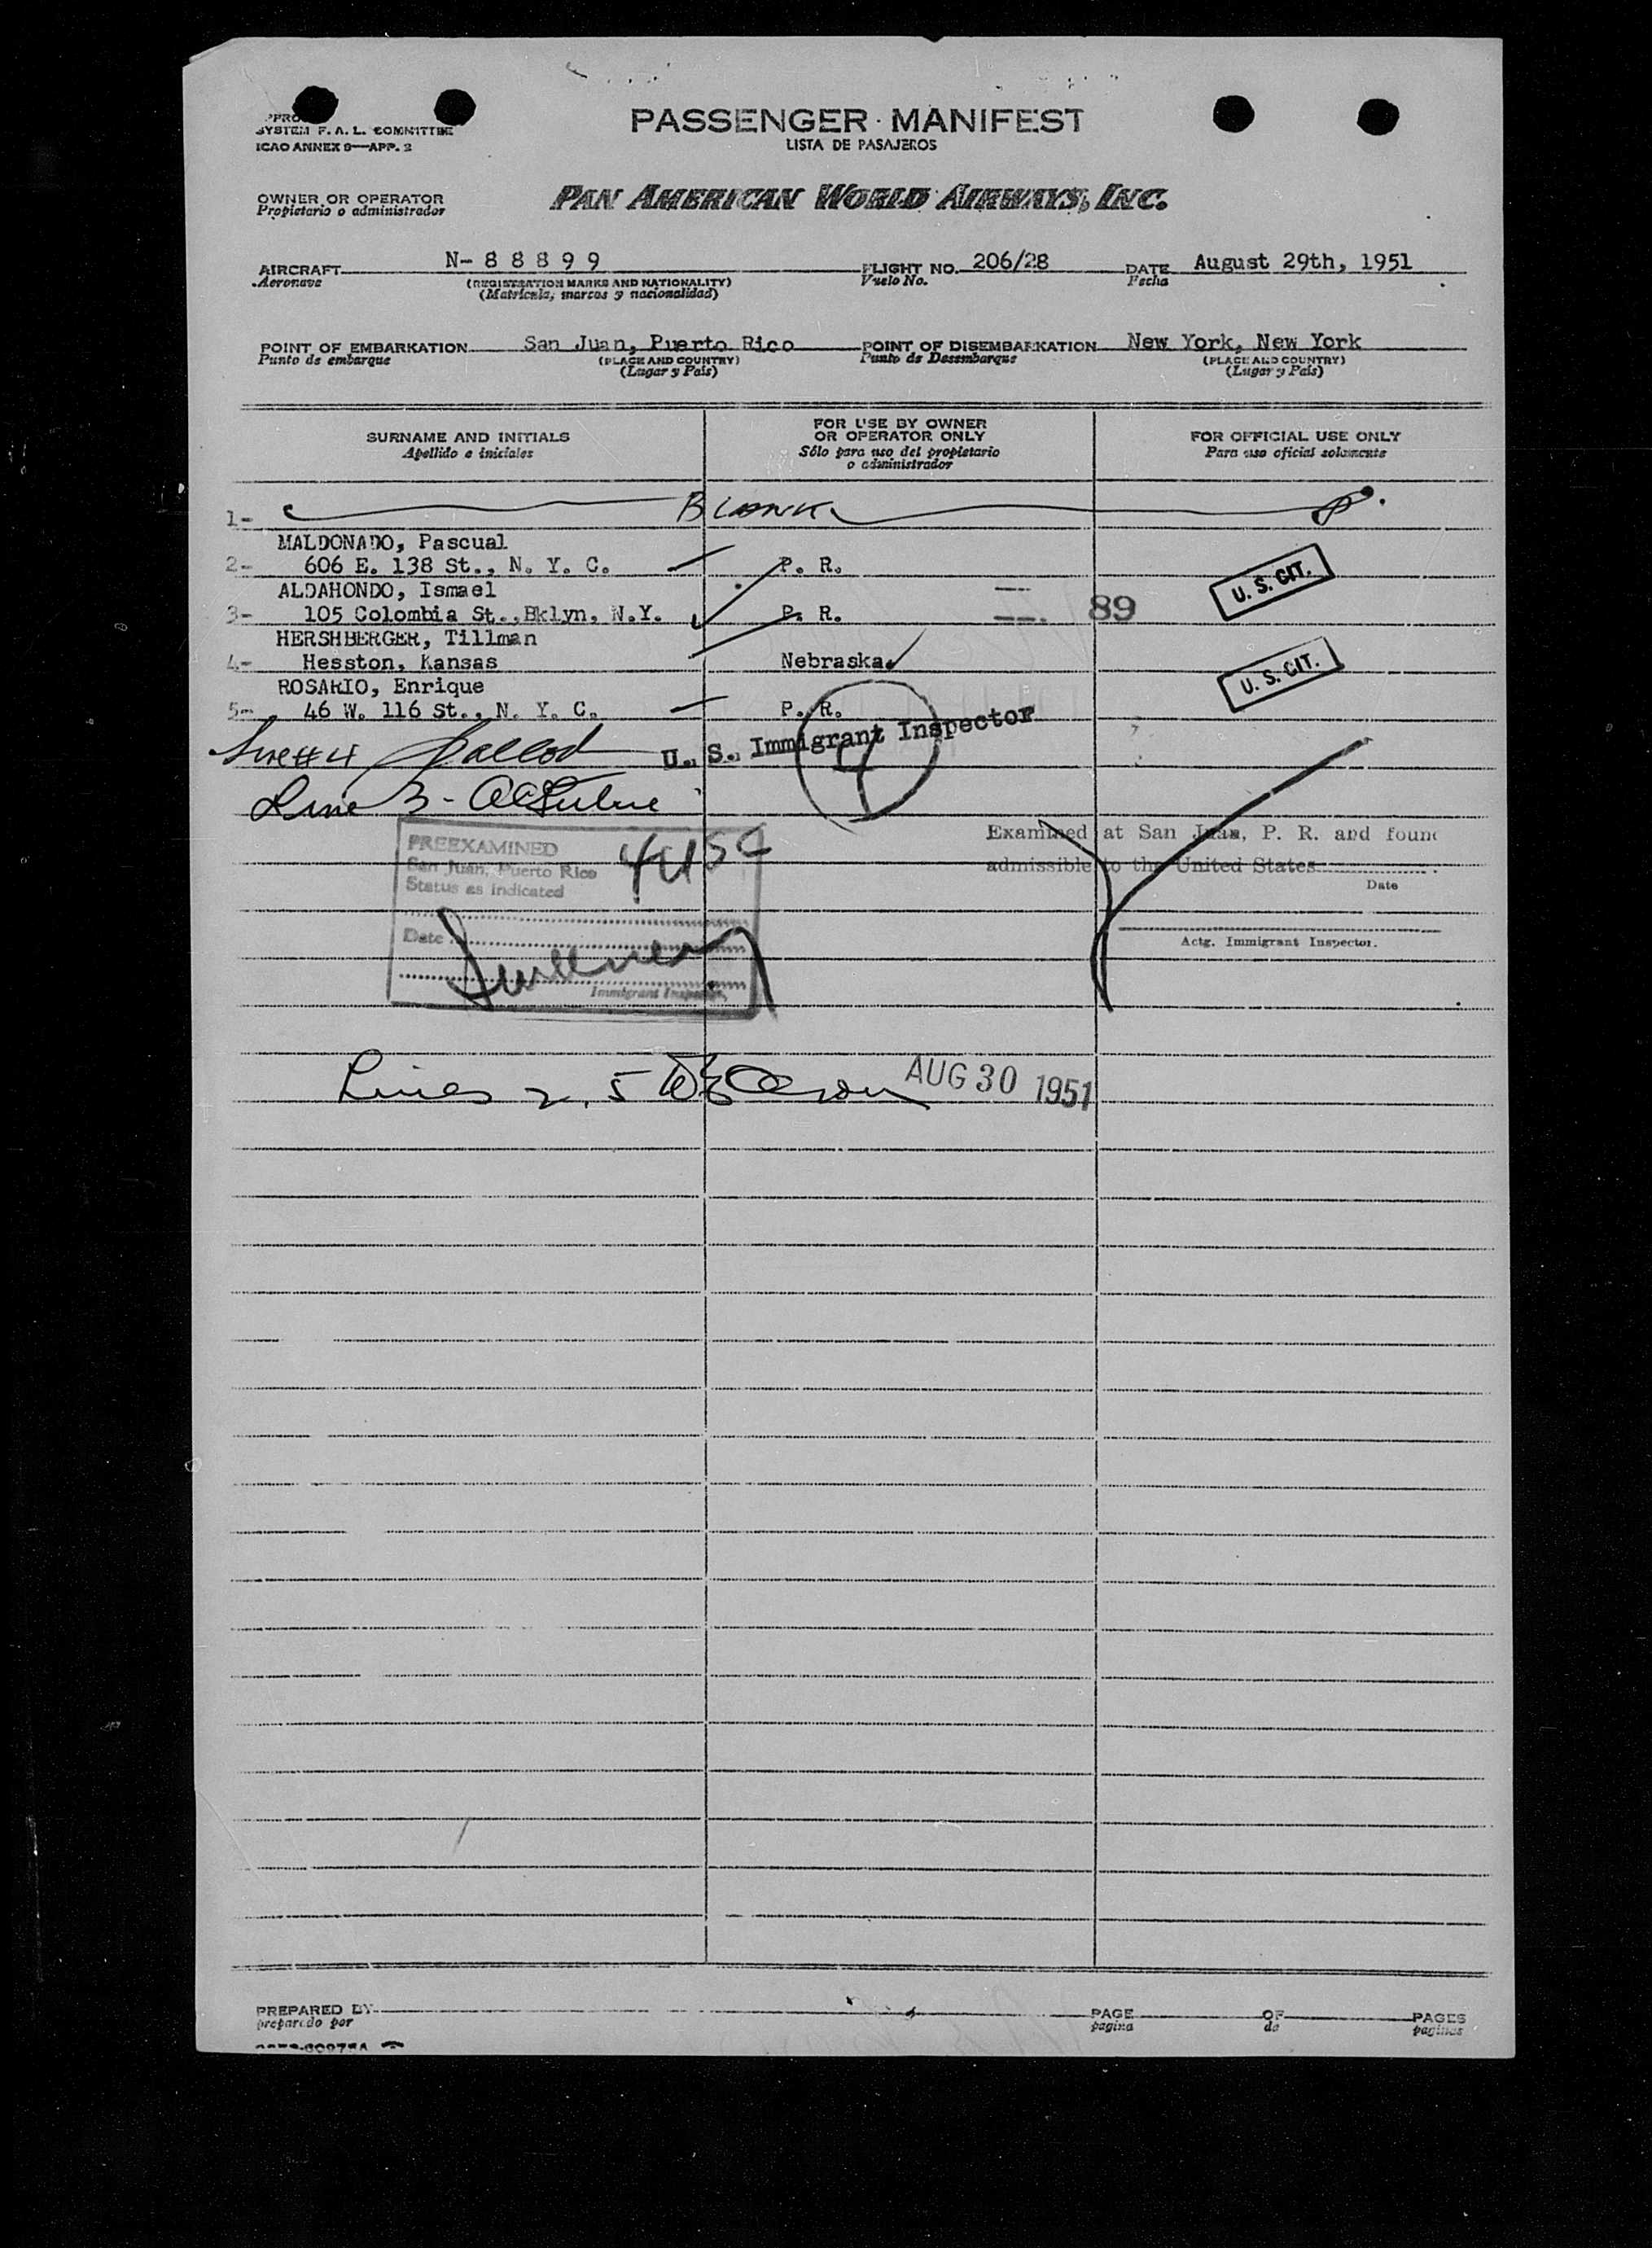 PASSENGER MANIFEST
LISTA DE PASAJEROS
SYSTEM F. A. L. COMMITTEE
ICAO ANNEX 9—APP. 2
OWNER OR OPERATOR
Propietario o administrador
PAN AMERICAN WORLD AIRWAYS, INC.
AIRCRAFT N- 8 8 8 9 9 FLIGHT NO. 206/28 DATE August 29th, 1951
Aeronave (REGISTRATION MARKS AND NATIONALITY) Vuelo No. Fecha
(Matrícula, marcas y nacionalidad)
POINT OF EMBARKATION San Juan, Puerto Rico POINT OF DISEMBARKATION New York, New York
Punto de embarque (PLACE AND COUNTRY) Punto de Desembarque (PLACE AND COUNTRY)
(Lugar y País) (Lugar y País)
SURNAME AND INITIALS
Apellido e iniciales
FOR USE BY OWNER
OR OPERATOR ONLY
Sólo para uso del propietario
o administrador
FOR OFFICIAL USE ONLY
Para uso oficial solamente
1- BLANK
MALDONADO, Pascual
2- 606 E. 138 St., N. Y. C. P. R.
U. S. CIT.
ALDAHONDO, Ismael
3- 105 Colombia St., Bklyn, N.Y. P. R. 89
HERSHBERGER, Tillman
4- Hesston, Kansas Nebraska
U. S. CIT.
ROSARIO, Enrique
5- 46 W. 116 St., N. Y. C. P. R.
Line #4 U. S. Immigrant Inspector
4
Line 3-
PREEXAMINED
San Juan, Puerto Rico
Status as indicated
4 USC
Date
Immigrant Inspector
Examined at San Juan, P. R. and foun
admissible to the United States
Date
Actg. Immigrant Inspector.
Lines 2, 5 AUG 30 1951
PREPARED BY PAGE OF PAGES
preparado por pagina de paginas